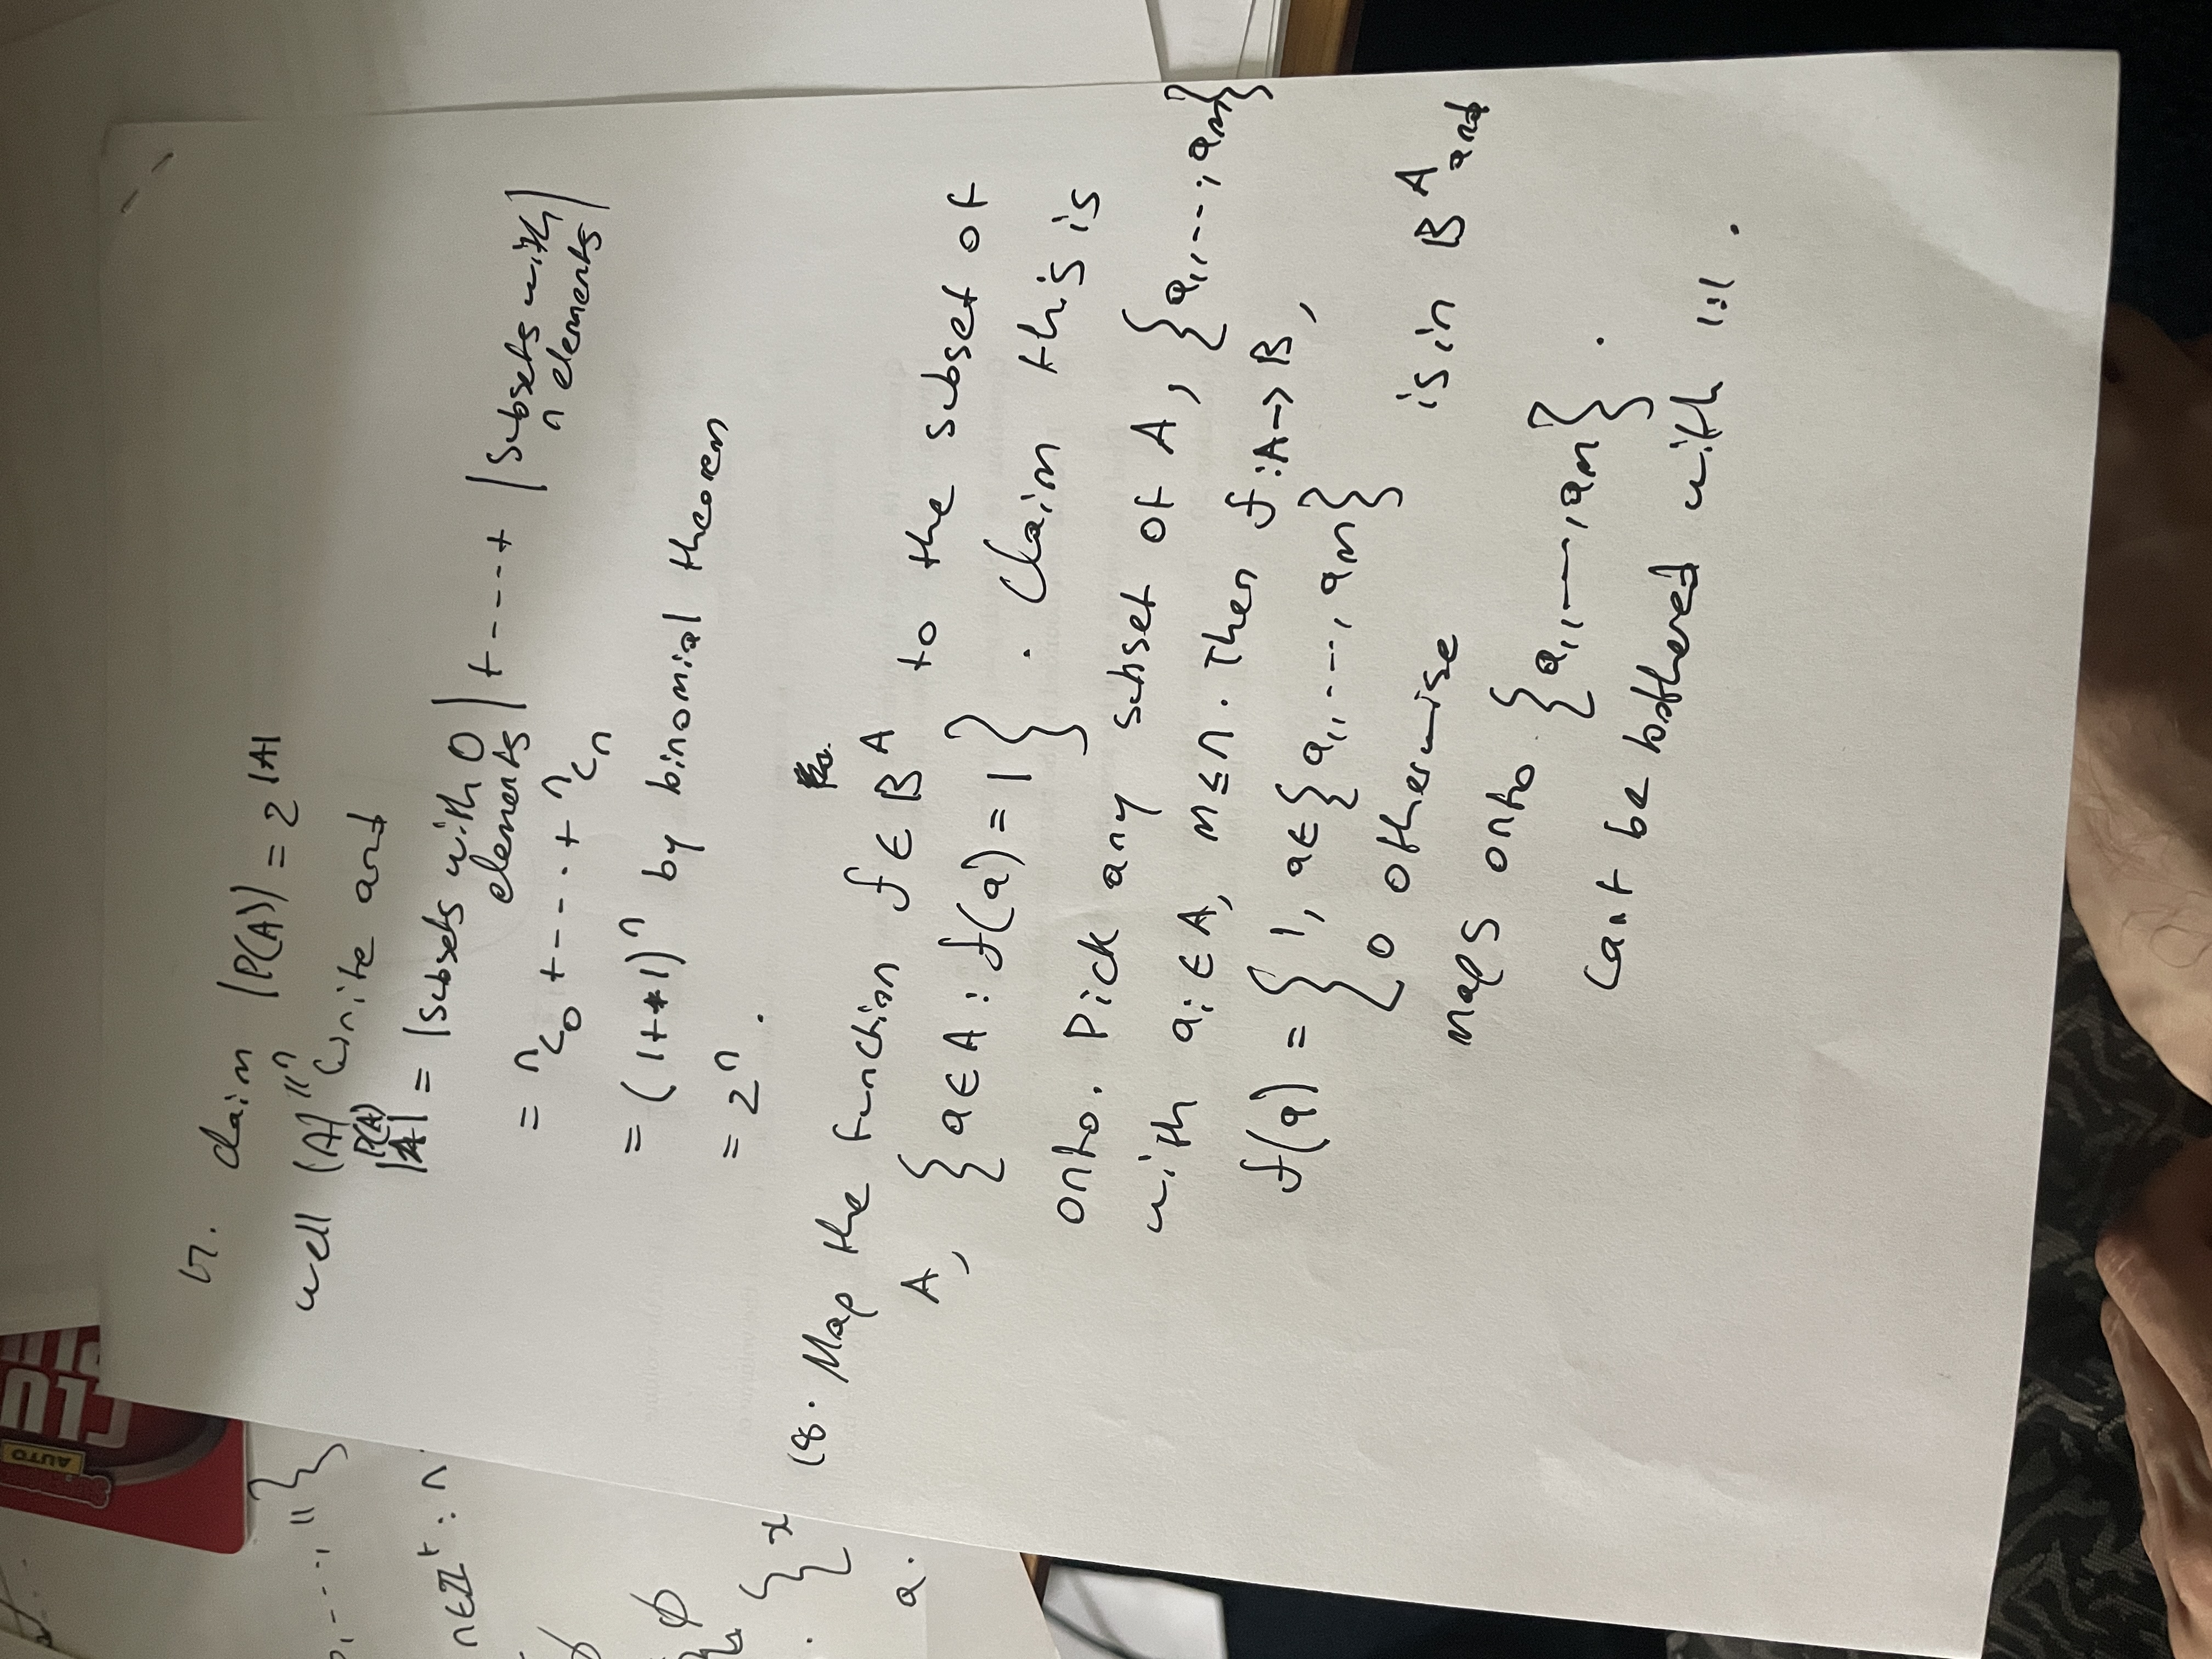 AUTO
CLU
17. claim |P(A)| = 2^|A|
well |A| = n finite and
|P(A)| = |subsets with 0 elements| + ---- + |subsets with n elements|
= nC0 + --- . + nCn
= (1+1)^n by binomial theorem
= 2^n .
18. Map the function f ∈ B^A to the subset of
A, {a ∈ A : f(a) = 1} . Claim this is
onto. Pick any subset of A, {a1, ---, am}
with ai ∈ A, m ≤ n. Then f : A → B,
f(a) = { 1, a ∈ {a1, ---, am}
0 otherwise is in B^A and
maps onto {a1, —, am} .
Cant be bothered with 1:1 .
, ---, 11}
n ∈ Z+ : n
ϕ
ϕ
. {x
a.